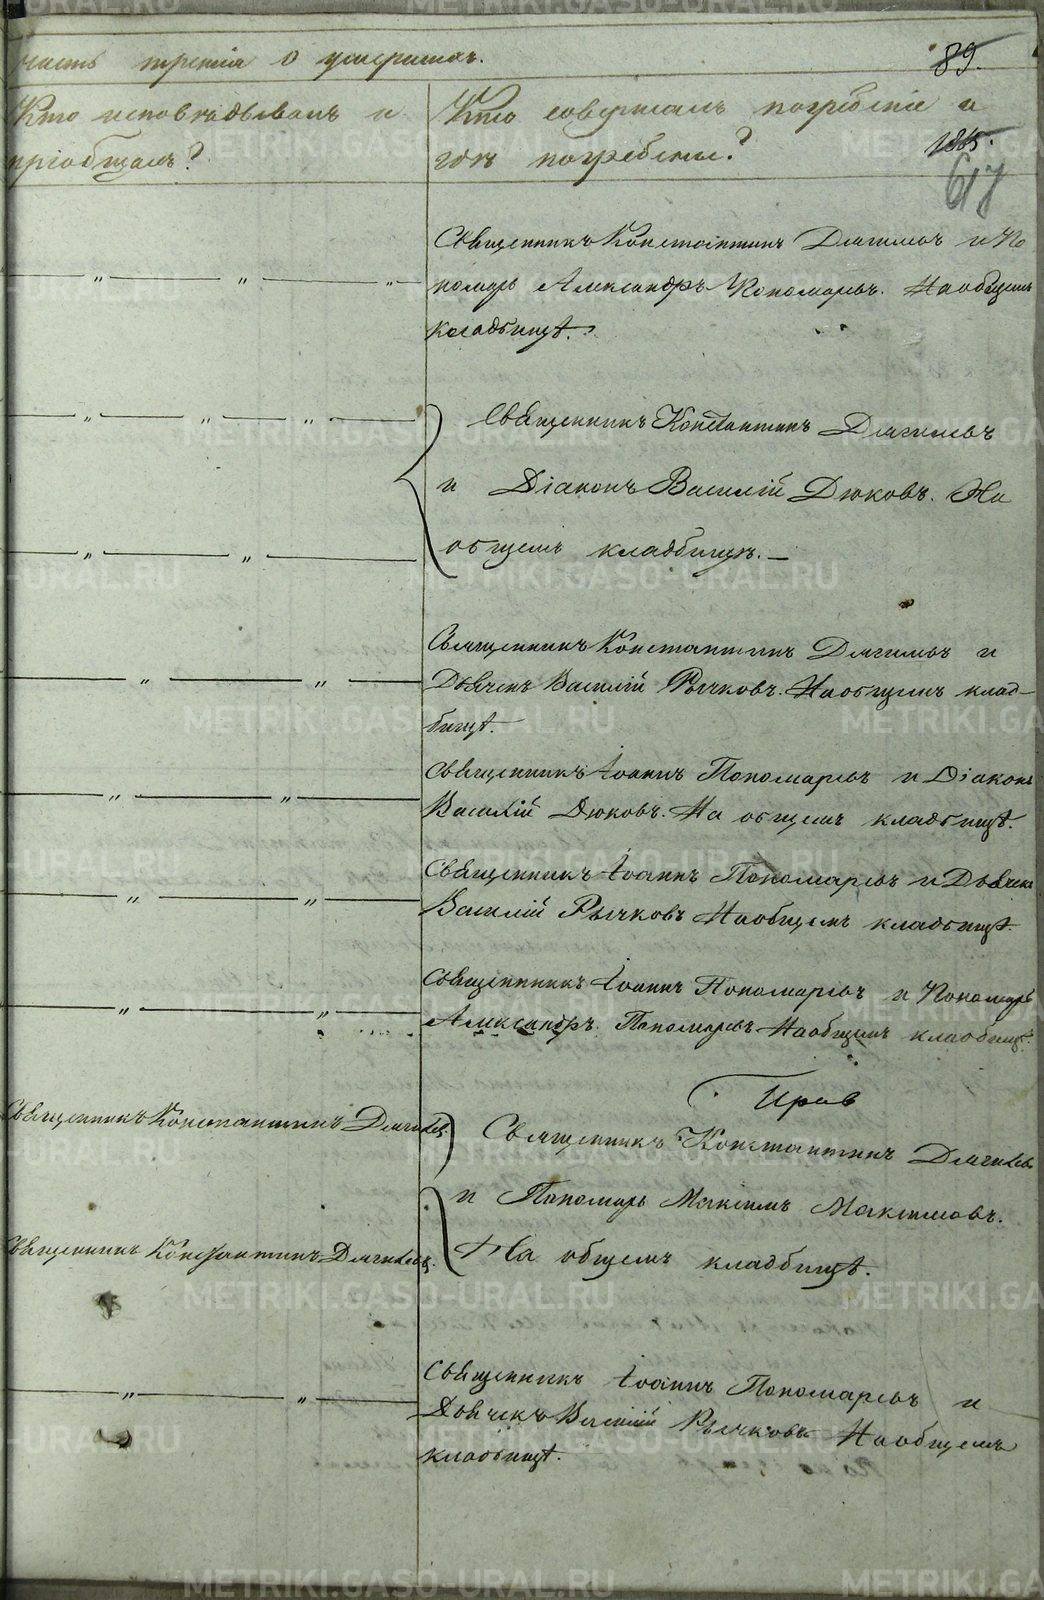 часть третія о умершихъ.
89.
Кто исповѣдывалъ и
пріобщалъ?
Кто совершалъ погребеніе и
гдѣ погребены?
1865.
617
Священникъ Константинъ Дягилевъ и По
номарь Александръ Пономаревъ. На общемъ
кладбищѣ.
Священникъ Константинъ Дягилевъ
и Діаконъ Василій Дюковъ. На
общемъ кладбищѣ.
Священникъ Константинъ Дягилевъ и
Дьячекъ Василій Рычковъ. На общемъ клад-
бищѣ.
Священникъ Іоаннъ Пономаревъ и Діаконъ
Василій Дюковъ. На общемъ кладбищѣ.
Священникъ Іоаннъ Пономаревъ и Дьячекъ
Василій Рычковъ На общемъ кладбищѣ.
Священникъ Іоаннъ Пономаревъ и Пономарь
Александръ Пономаревъ На общемъ кладбищѣ.
Священникъ Константинъ Дягилевъ
Священникъ Константинъ Дягилевъ
и Пономарь Максимъ Максимовъ.
Священникъ Константинъ Дягилевъ.
На общемъ кладбищѣ.
Священникъ Іоаннъ Пономаревъ и
Дьячекъ Василій Рычковъ На общемъ
кладбищѣ.
METRIKI.GASO-URAL.RU